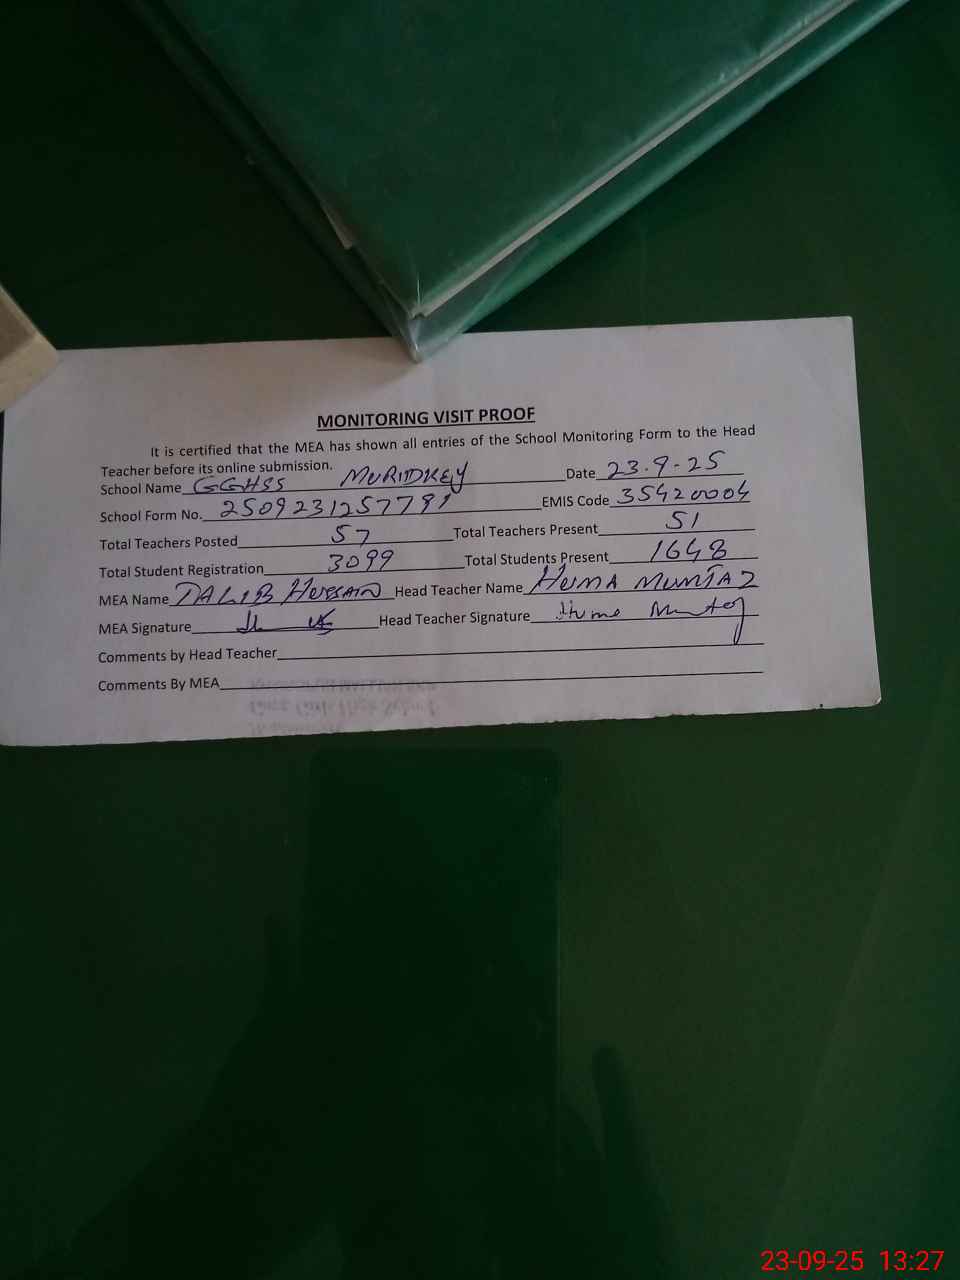 MONITORING VISIT PROOF
It is certified that the MEA has shown all entries of the School Monitoring Form to the Head
Teacher before its online submission.
School Name GGHSS MURIDKEY Date 23.9-25
School Form No. 2509231257791 EMIS Code 35420004
Total Teachers Posted 57 Total Teachers Present 51
Total Student Registration 3099 Total Students Present 1648
MEA Name TALIB HUSSAIN Head Teacher Name HUMA MUMTAZ
MEA Signature Head Teacher Signature Huma Mumtaz
Comments by Head Teacher
Comments By MEA
23-09-25 13:27